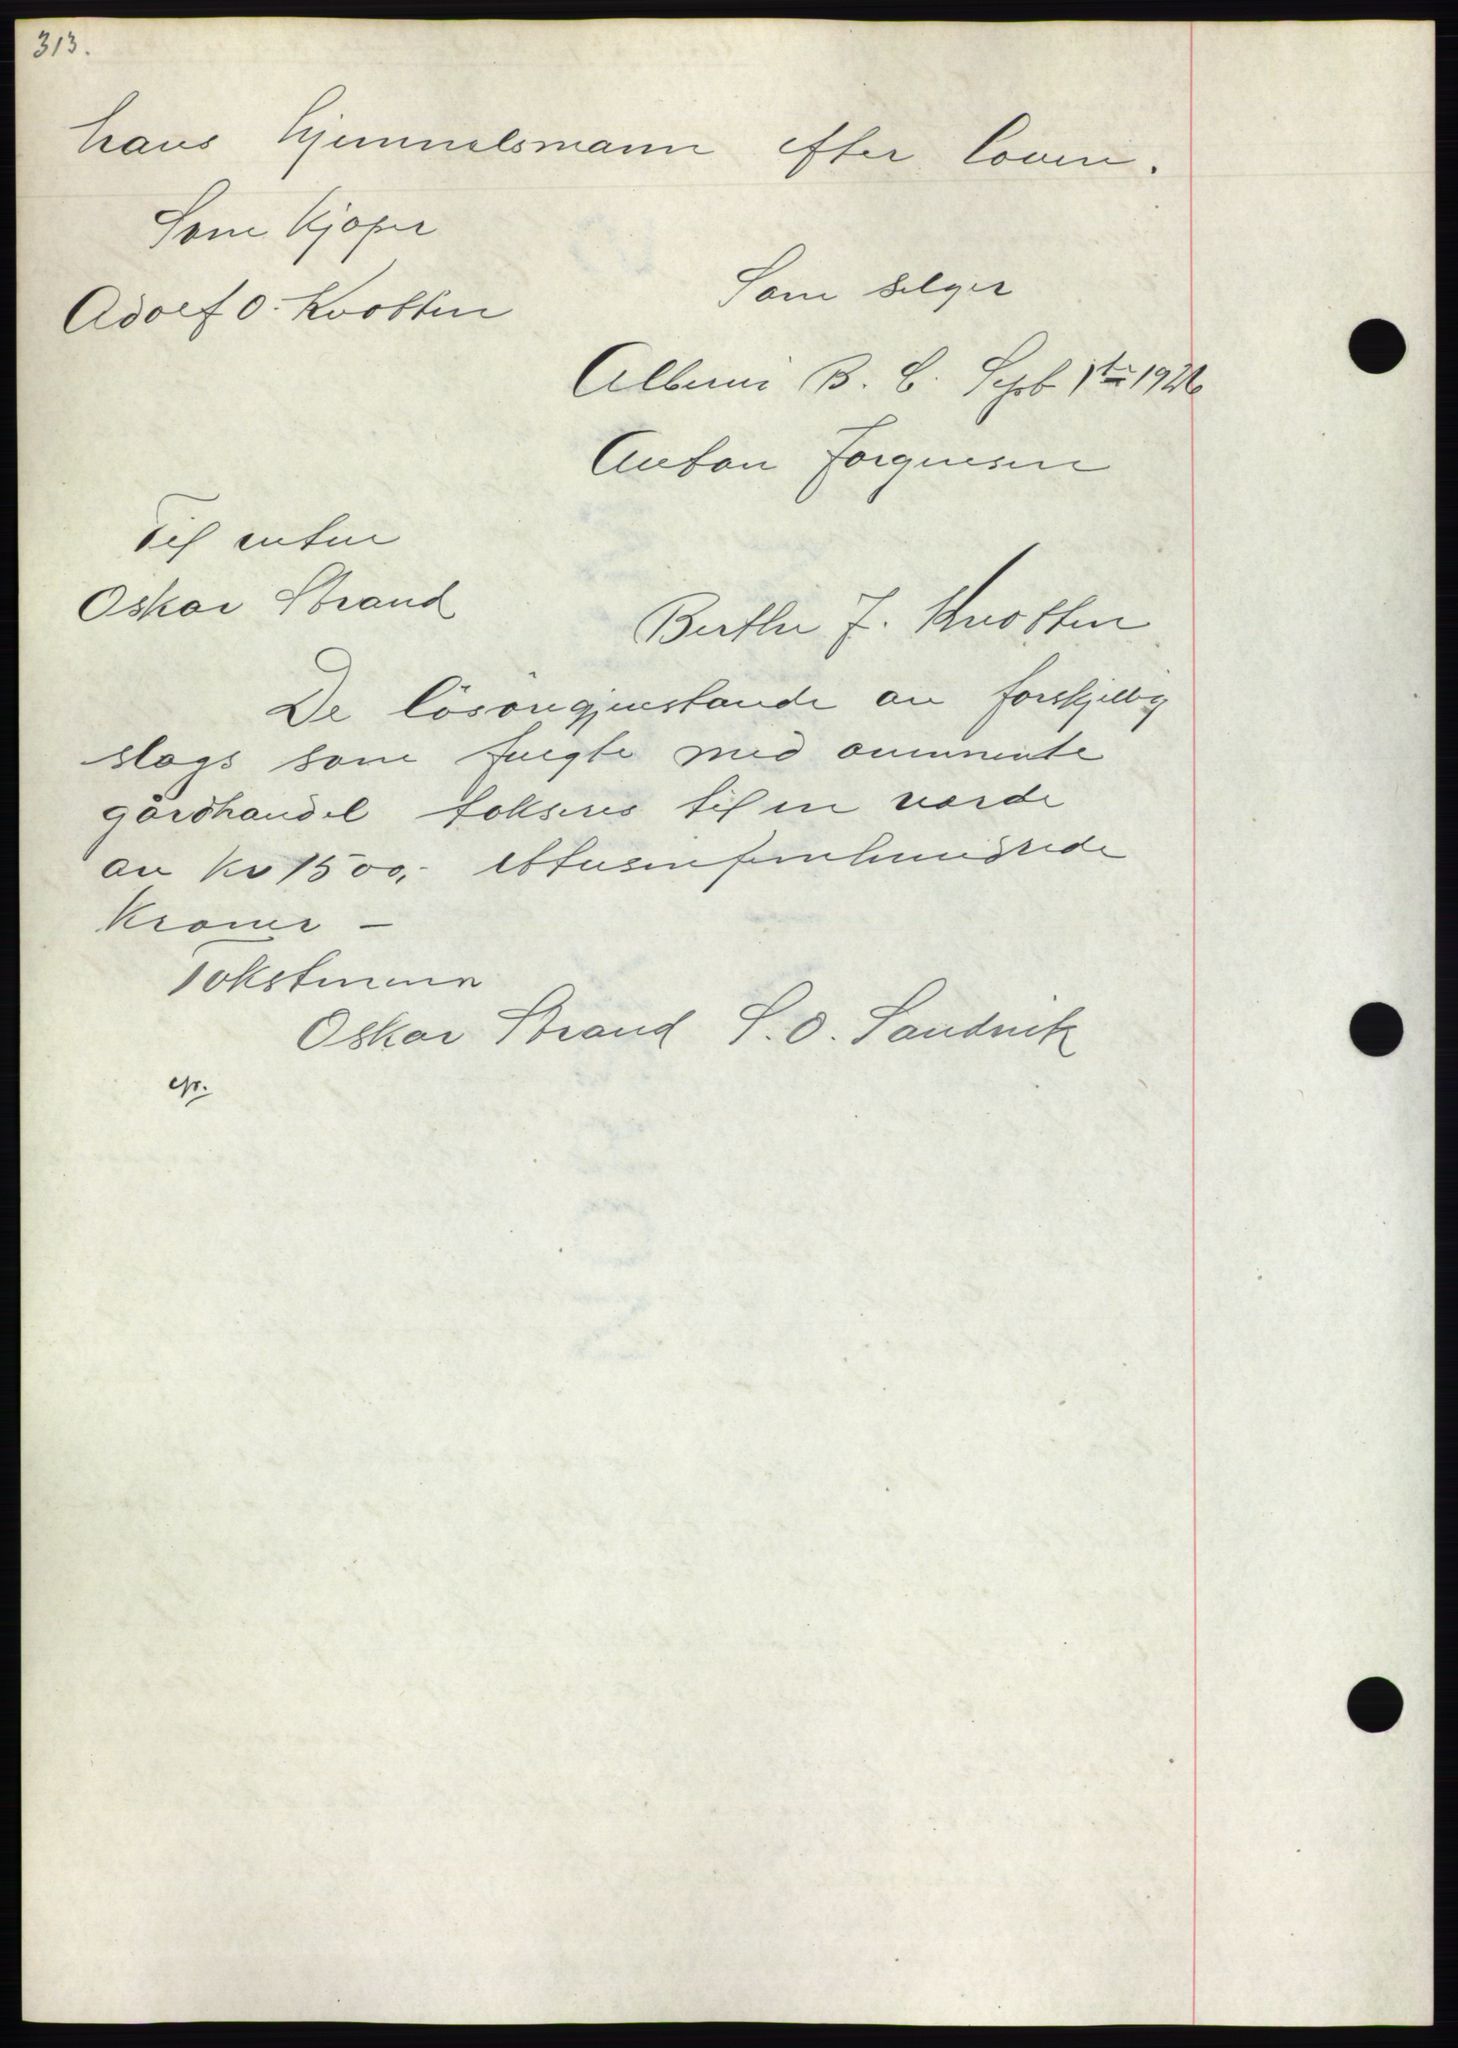 313.
hans hjemmelsmann efter loven.
Som kjøper
Som selger
Adolf O. Kvatten
Alberni B. C. Sept 1ste 1926
Anton Jorgensen
Til vitne
Oskar Strand
Berthe J. Kvatten
De lösöregjenstande av forskjellig
slags som fulgte med omnevnte
gårdhandel takseres til en værde
av Kr 1500,- ettusenfemhundrede
Kroner —
Takstmenn
Oskar Strand S. O. Sandvik